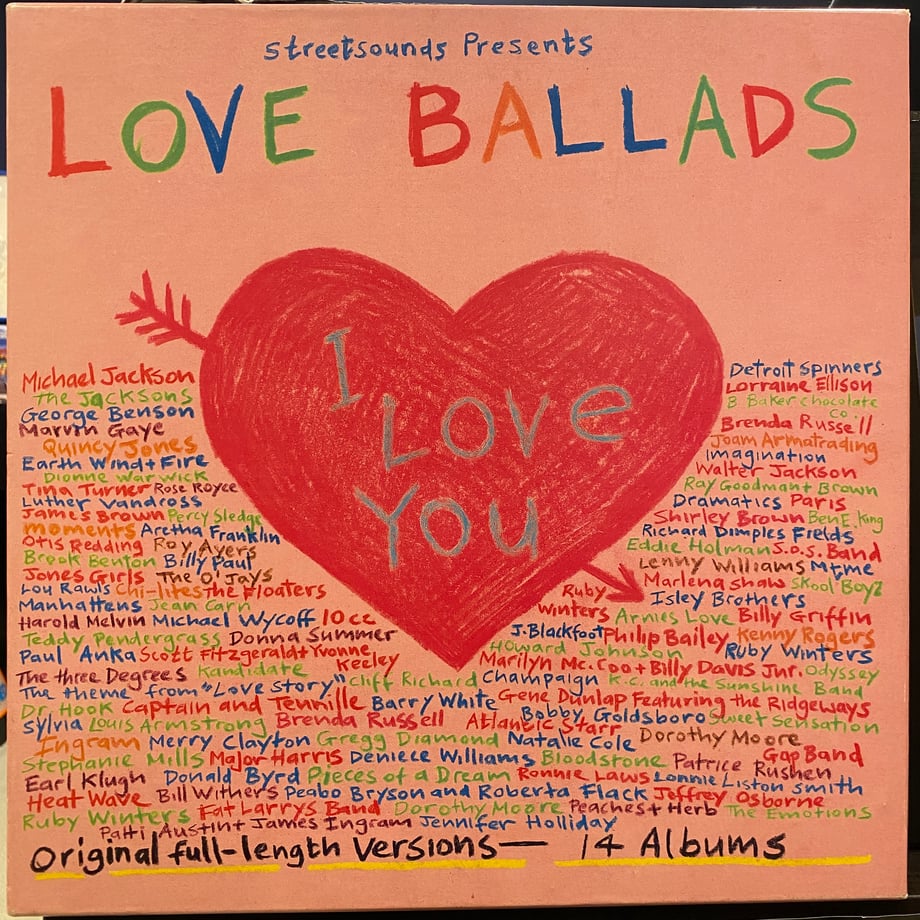 streetsounds Presents
LOVE BALLADS
I
LOVE
YOU
Michael Jackson
The Jacksons
George Benson
Marvin Gaye
Quincy Jones
Earth Wind + Fire
Dionne Warwick
Tina Turner Rose Royce
Luther Vandross
James Brown Percy Sledge
Moments Aretha Franklin
Otis Redding Roy Ayers
Brook Benton Billy Paul
Jones Girls The O'Jays
Lou Rawls Chi-lites The Floaters
Manhattens Jean Carn
Harold Melvin Michael Wycoff 10cc
Teddy Pendergrass Donna Summer
Paul Anka Scott Fitzgerald + Yvonne Keeley
The three Degrees Kandidate
Detroit Spinners
Lorraine Ellison
B Baker chocolate Co.
Brenda Russell
Joam Armatrading
imagination
Walter Jackson
Ray Goodman + Brown
Dramatics Paris
Shirley Brown Ben E. King
Richard Dimples Fields
Eddie Holman S.O.S. Band
Lenny Williams Mtme
Marlena shaw Skool Boyz
Isley Brothers
Ruby Winters Arnies Love Billy Griffin
J. Blackfoot Philip Bailey Kenny Rogers
Howard Johnson Ruby Winters
Marilyn Mc. Coo + Billy Davis Jnr. Odyssey
The theme from "Love story" Cliff Richard Champaign K.C. and the Sunshine Band
Dr. Hook Captain and Tennille Barry White Gene Dunlap Featuring the Ridgeways
Sylvia Louis Armstrong Brenda Russell Atlantic Starr Bobby Goldsboro Sweet Sensation
Ingram Merry Clayton Gregg Diamond Natalie Cole Dorothy Moore
Stephanie Mills Major Harris Deniece Williams Bloodstone Patrice Rushen Gap Band
Earl Klugh Donald Byrd Pieces of a Dream Ronnie Laws Lonnie Liston Smith
Heat Wave Bill Withers Peabo Bryson and Roberta Flack Jeffrey Osborne
Ruby Winters Fat Larrys Band Dorothy Moore Peaches + Herb The Emotions
Patti Austin + James Ingram Jennifer Holliday
Original full-length Versions — 14 Albums